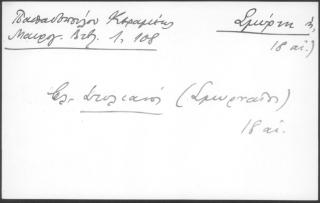 Παπαδοπούλου Κεραμέως
Μαυρογ. Βιβ. 1, 108
Σμύρνη
18 αἰ.)
Στυλιανός (Σμυρναῖος)
18 αἰ.